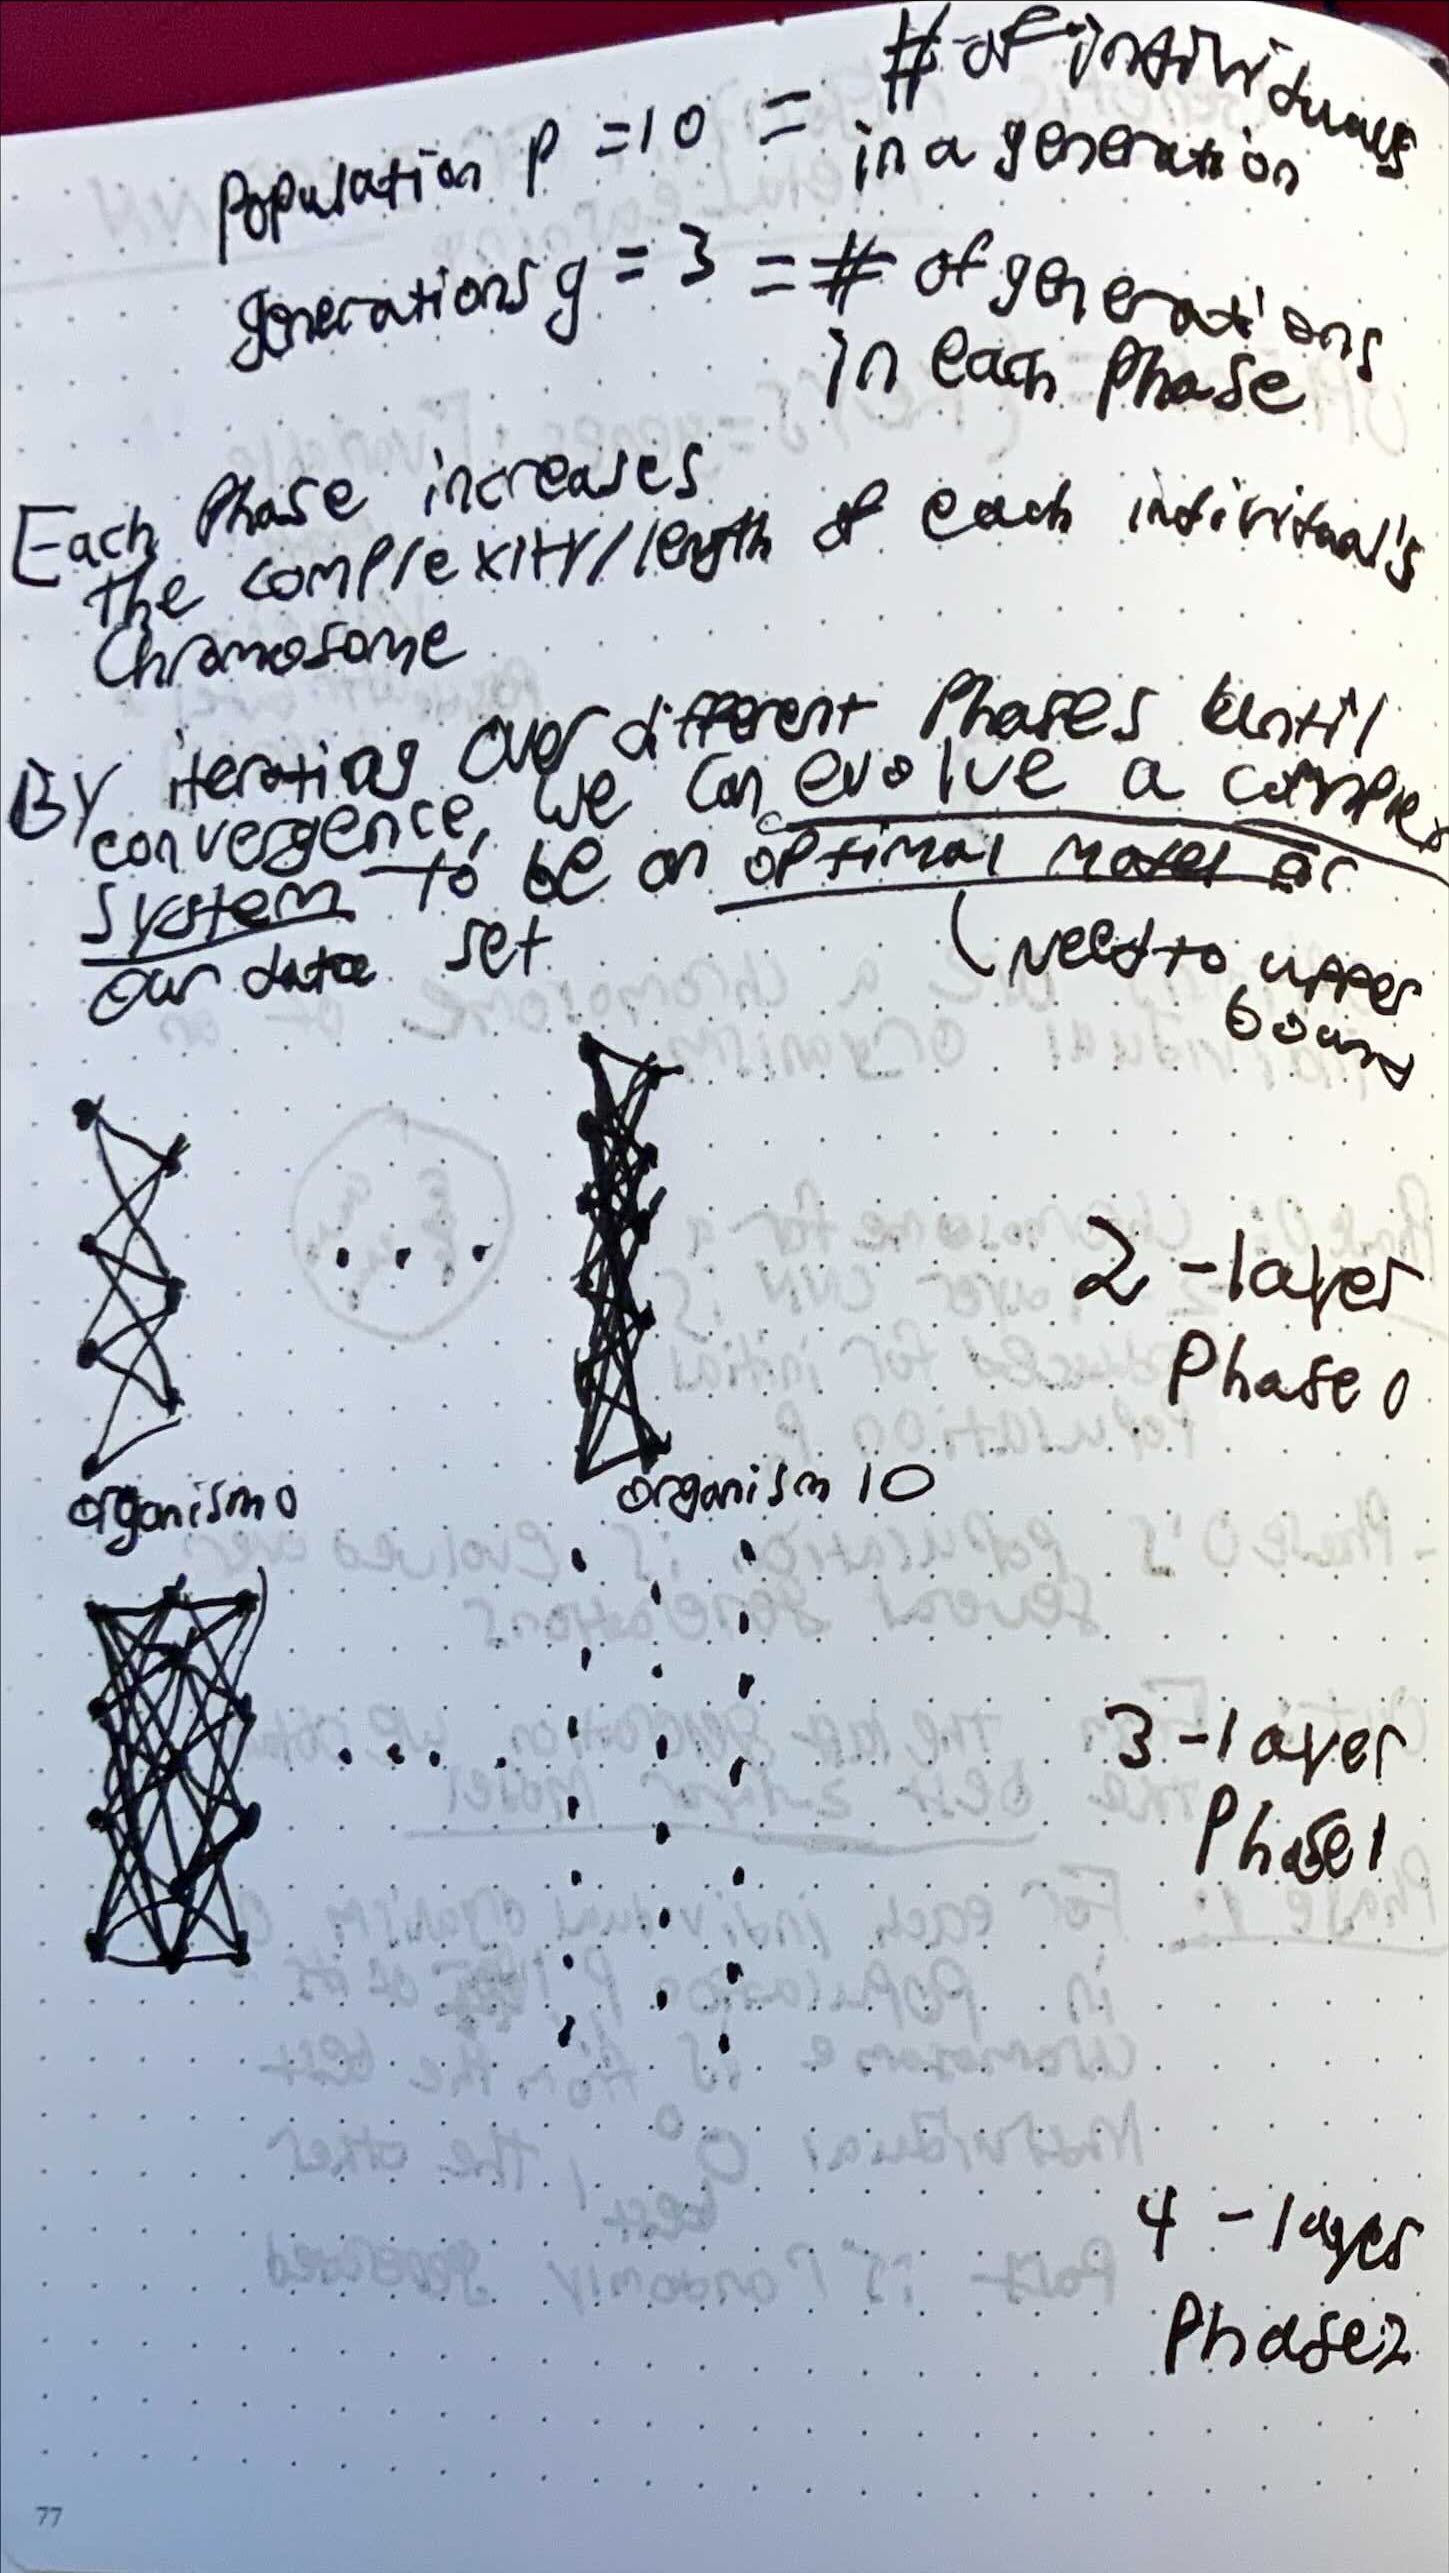 Population p = 10 = # of individuals
in a generation
generations g = 3 = # of generations
in each Phase
Each Phase increases
the complexity/length of each individual's
Chromosome
By iterating over different Phases until
convergence, we can evolve a complex
system to be an optimal model for
our data set
(need to upper
bound
2-layer
Phase 0
organism 0
organism 10
3-layer
Phase 1
4-layer
Phase 2
77